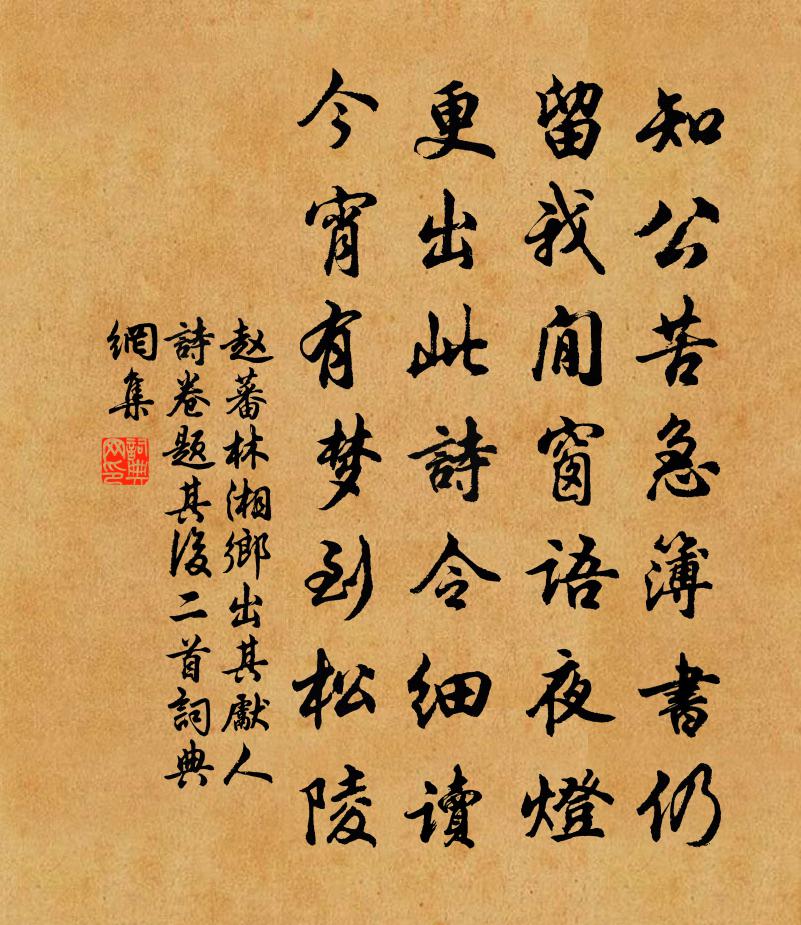 知公苦急簿書仍
留我閒窗語夜燈
更出此詩令細讀
今宵有梦到松陵
赵蕃林湘鄉出其獻人
詩卷题其後二首詞典
網集
詞典网印